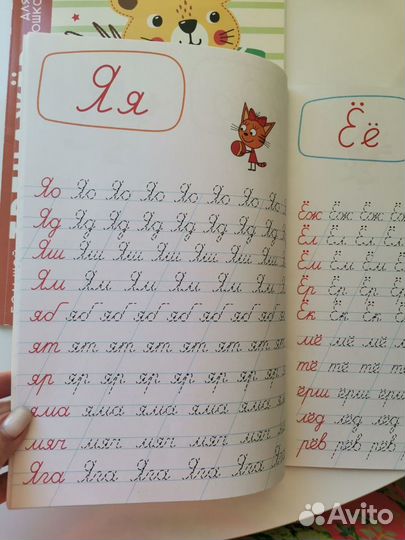 ДЛЯ
ДОШКО
Яя
Яо Яо Яо Яо Яо Яо Яо
Яд Яд Яд Яд Яд Яд Яд
Яш Яш Яш Яш Яш Яш
Ям Ям Ям Ям Ям Ям
яб яб яб яб яб яб яб
ят ят ят ят ят ят ят
яр яр яр яр яр яр яр
яма яма яма яма яма
мяч мяч мяч мяч мяч
Яга Яга Яга Яга Яга
Ёё
Ёж Ёж Ёж Ёж
Ёл Ёл Ёл Ёл
Ём Ём Ём Ём
Ёр Ёр Ёр Ёр
Ёк Ёк Ёк Ёк
мё мё мё
тё тё тё
ёрш ёрш ёрш
лёд лёд лёд
рёв рёв рёв
Avito